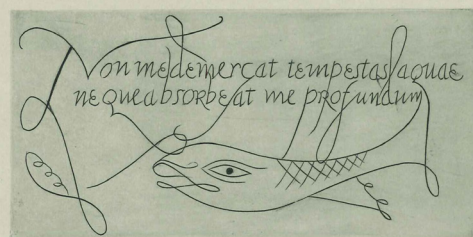 Non me demergat tempestas aquae
neque absorbeat me profundum